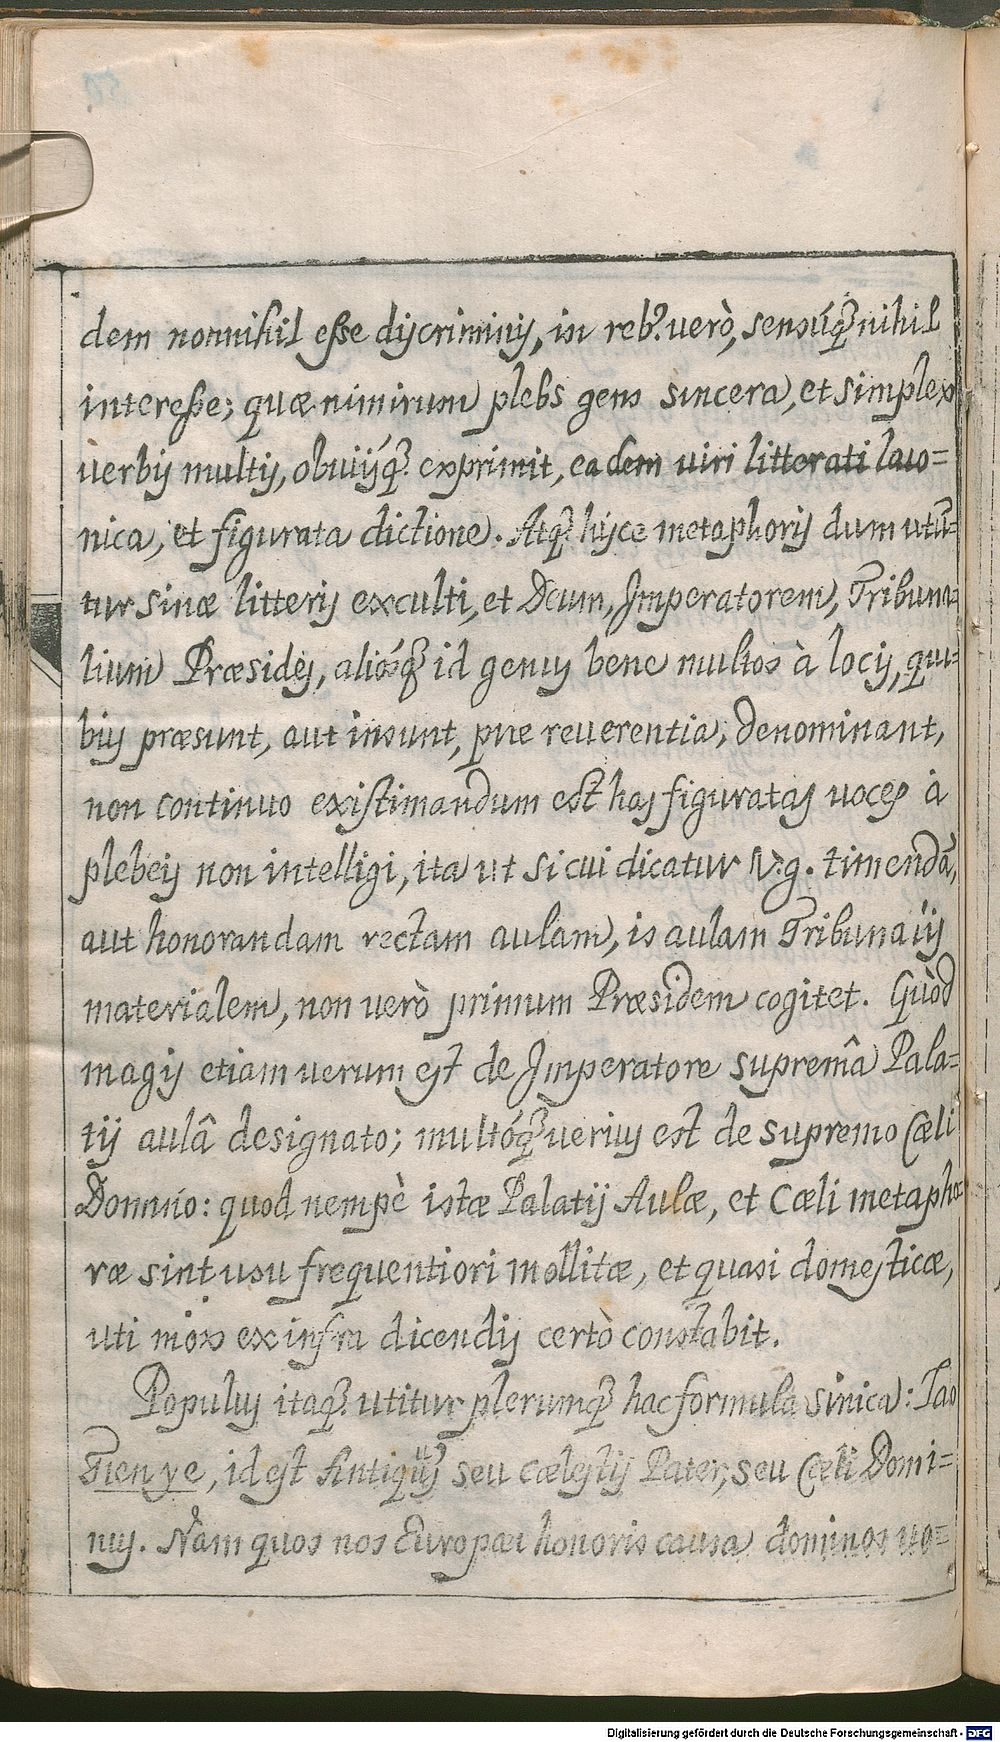 dem nonnihil esse discriminis, in reb9. verò, sensúq3 nihil
interesse; quæ nimirum plebs gens sincera, et simplex
verbis multis, obviisq3. exprimit, eadem viri litterati laco=
nica, et figurata dictione. Atq3 hisce metaphoris dum utũ=
tur Sinæ litteris exculti, et Deum, Imperatorem, Tribuna=
lium Præsides, aliósq3 id genus bene multos à locis, qui=
bus præsunt, aut insunt, præ reverentia, denominant,
non continuo existimandum est has figuratas voces à
plebeis non intelligi, ita ut si cui dicatur V.g. timendã,
aut honorandam rectam aulam, is aulam Tribunalis
materialem, non verò primum Præsidem cogitet. Quòd
magis etiam verum est de Imperatore supremâ Pala=
tij aulâ designato; multóq3 verius est de supremo Cæli
Domino: quod nempè istæ Palatij Aulæ, et Cæli metapho
ræ sint usu frequentiori mollitæ, et quasi domesticæ,
uti mox ex infra dicendis certò constabit.
Populus itaq3. utitur plerumq3 hac formula sinica: Lao
Tien ye, id est Antiquus seu cælestis Pater, seu Cæli Domi=
nus. Nam quos nos Europæi honoris causa dominos vo=
Digitalisierung gefördert durch die Deutsche Forschungsgemeinschaft - DFG